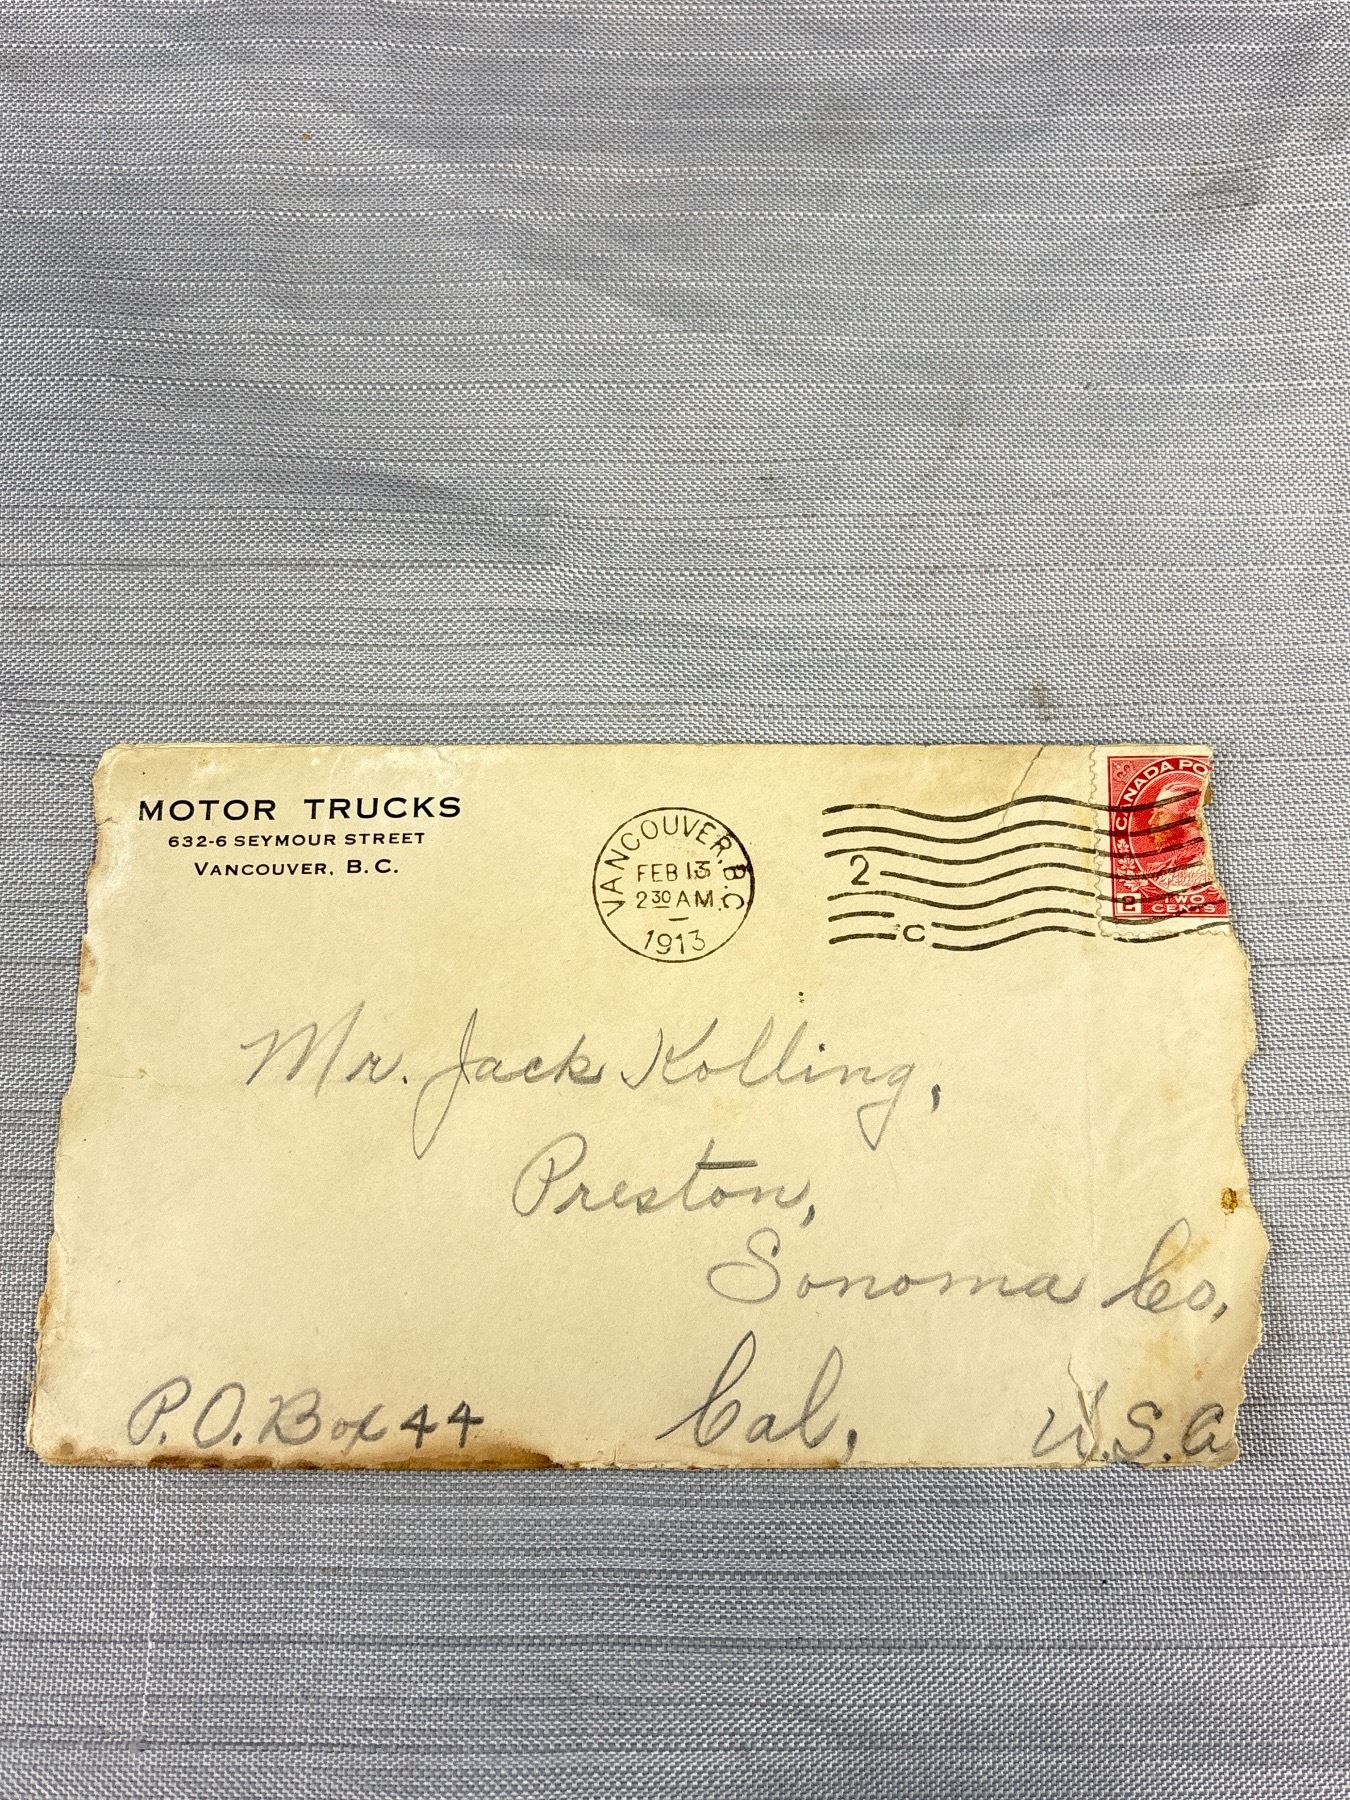 MOTOR TRUCKS
632-6 SEYMOUR STREET
VANCOUVER, B.C.
VANCOUVER, B.C
FEB 13
2 30 AM.
1913
2
C
CANADA PO
2
TWO
CENTS
Mr. Jack Kolling,
Preston,
Sonoma Co,
Cal,
U.S.A
P.O. Box 44